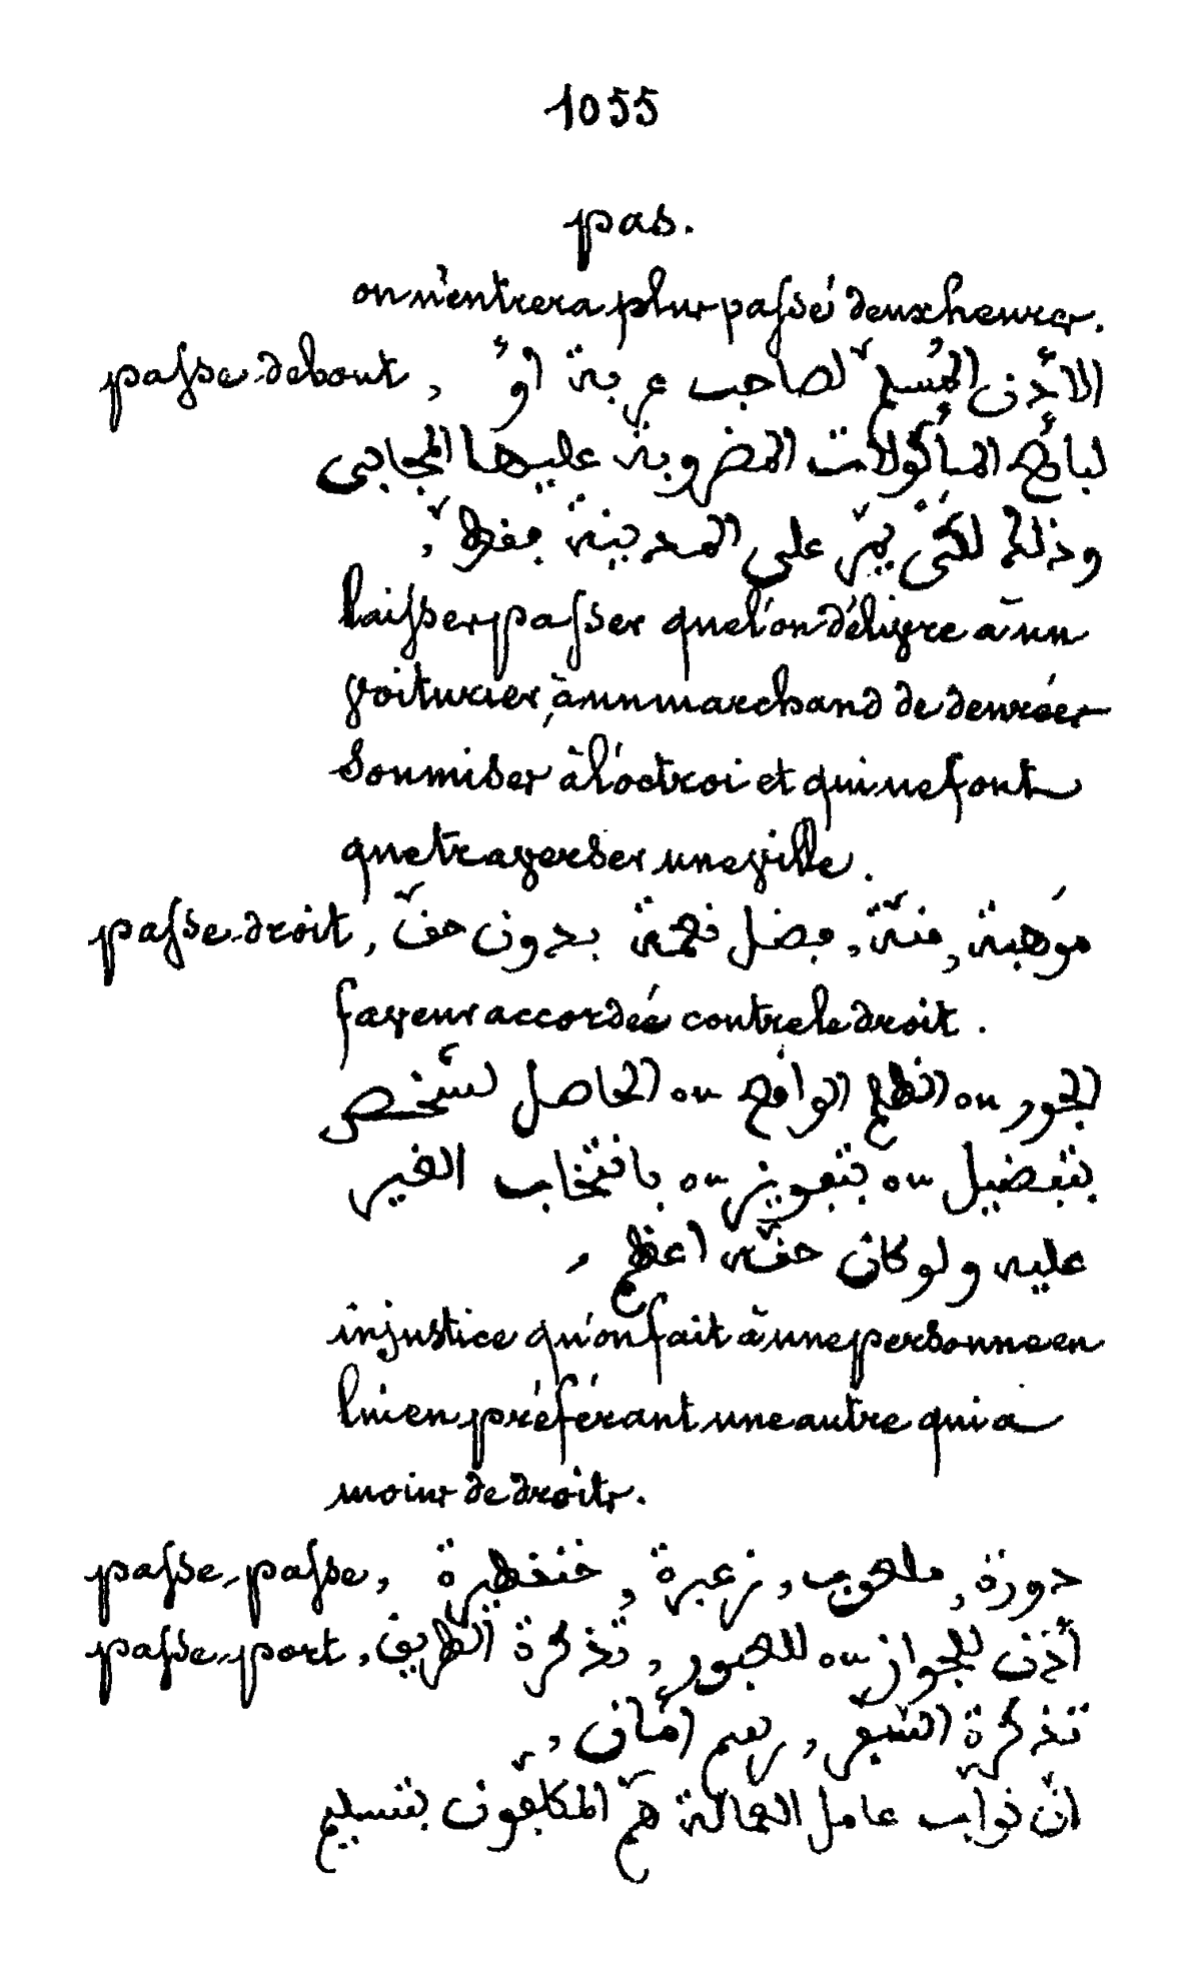 1055
pas.
on n'entrera plus passé deux heures.
passe-debout, الاذن المُسرح لصاحب عربة او
لبائع المأكولات المضروبة عليها المجابى
وذلك لكى يمرّ على المدينة بفط,
laisser passer que l'on délivre à un
voiturier, à un marchand de denrées
soumises à l'octroi et qui ne font
que traverser une ville.
passe-droit, موهبة, منّة, فضل نعمة بدون حقّ
faveur accordée contre le droit.
الجور ou الظلم الواقع ou الحاصل لشخص
بتفضيل ou بتفويز ou بانتخاب الغير
عليه ولو كان حقّه اعظم,
injustice qu'on fait à une personne en
lui en préférant une autre qui a
moins de droits.
passe-passe, دورة, ملعوب, زعبرة, خنفطيرة
passe-port, أذن للجواز ou للعبور, تذكرة الطريق,
تذكرة السفر, رسم امان,
انّ نواب عامل العمالة همّ المكلّفون بتسليم